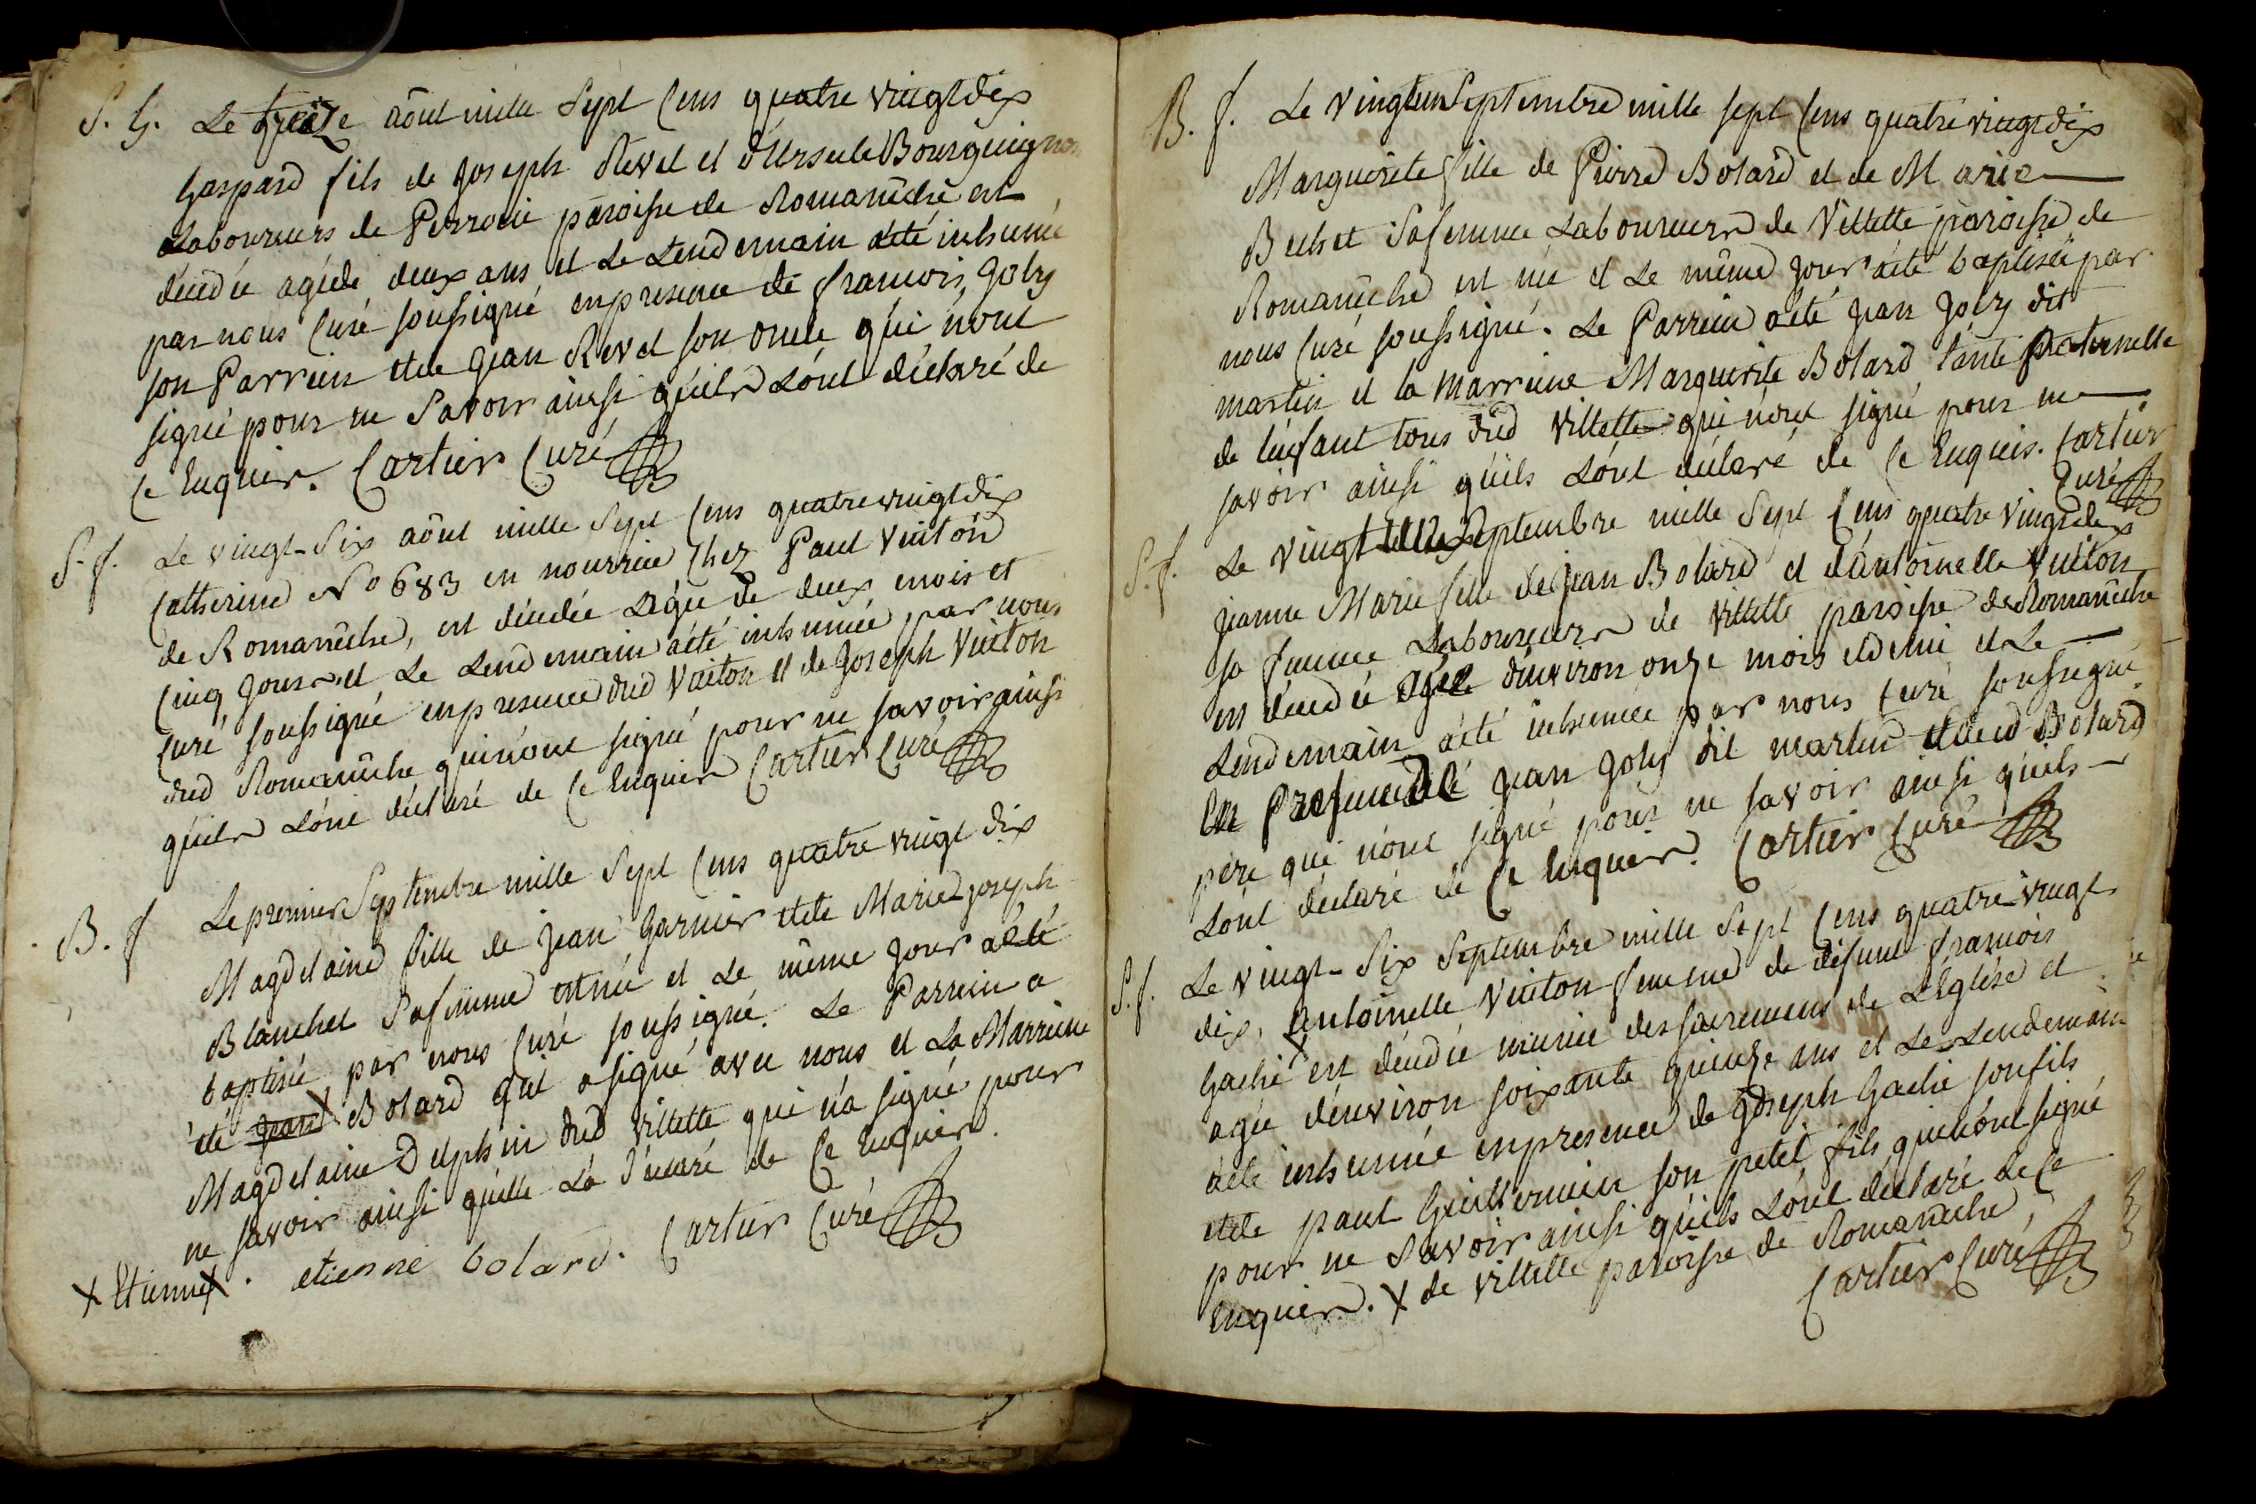 S. G. Le treize aôut mille Sept Cens quatre vingt dix
Gaspard fils de Joseph Revel et d'Ursule Bourguignon
Laboureurs de Perroux paroisse de Romanêche est
décédé agé de deux ans et Le Lendemain a été inhumé
par nous Curé soussigné en presence de francois Joly
son Parrein et de Jean Revel son oncle qui n'ont
signé pour ne Savoir ainsi qu'ils L'ont déclaré de
Ce Enquis. Cartier Curé
S. f. Le vingt-Six aôut mille Sept Cens quatre vingt dix
Catherine No 683 en nourrice Chez Paul Vuiton
de Romanêche, est décédée agée de deux mois et
Cinq Jours et Le Lendemain a été inhumée par nous
Curé soussigné en presence dud Vuiton et de Joseph Vuiton
dud Romanêche qui n'ont signé pour ne savoir ainsi
qu'ils L'ont déclaré de Ce Enquis Cartier Curé
B. f Le premier Septembre mille Sept Cens quatre vingt dix
Magdelaine fille de Jean Garnier et de Marie Joseph
Blanchet Sa femme est née et Le même Jour a été
baptisée par nous Curé soussigné. Le Parrein a
été Jean X Bolard qui a signé avec nous et La Marrine
Magdelaine Delphin dud Villette qui n'a signé pour
ne savoir ainsi qu'elle L'a déclaré de Ce Enquis.
X Etienne X. etienne bolard. Cartier Curé
B. f. Le vingt un Septembre mille sept Cens quatre vingt dix
Marguerite fille de Pierre Bolard et de Marie
Bechet Sa femme Laboureurs de Villette paroisse de
Romanêche est née et Le même Jour a été baptisée par
nous Curé soussigné. Le Parrein a été Jean Joly dit
martin et la Marrine Marguerite Bolard tante Paternelle
de l'enfant tous dud Villette qui n'ont signé pour ne
savoir ainsi qu'ils L'ont déclaré de Ce Enquis. Cartier
Curé
S. f. Le vingt Septembre mille Sept Cens quatre Vingt dix
Jeanne Marie fille de Jean Bolard et d'antoinette Vuiton
sa femme Laboureurs de Villette paroisse de Romanêche
est décédée agée d'environ onze mois et demi et Le
Lendemain a été inhumée par nous Curé soussigné
En Presence de Jean Joly dit martin et dud Bolard
pere qui n'ont signé pour ne savoir ainsi qu'ils
L'ont déclaré de Ce Enquis. Cartier Curé
S. f. Le vingt-Six Septembre mille Sept Cens quatre-vingt
dix, antoinette Vuiton femme de défunt francois
Gaché X est décédée munie des sacremens de L'Eglise et
agée d'environ soixante quinze ans et Le Lendemain
a été inhumée en presence de Joseph Gaché son fils
et de paul Guillermin son petit fils qui n'ont signé
pour ne Savoir ainsi qu'ils L'ont déclaré de Ce
Enquis. X de Villette paroisse de Romanêche,
Cartier Curé